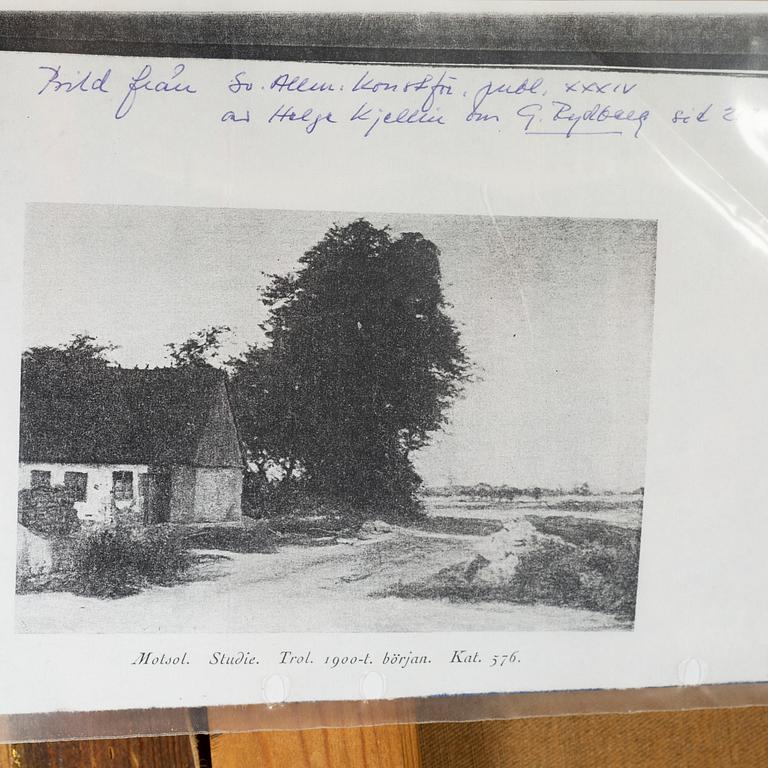 Bild från Sv. Allm. Konstför. publ. XXXIV
av Helge Kjellin om G. Rydberg sid 2
Motsol. Studie. Trol. 1900-t. början. Kat. 576.